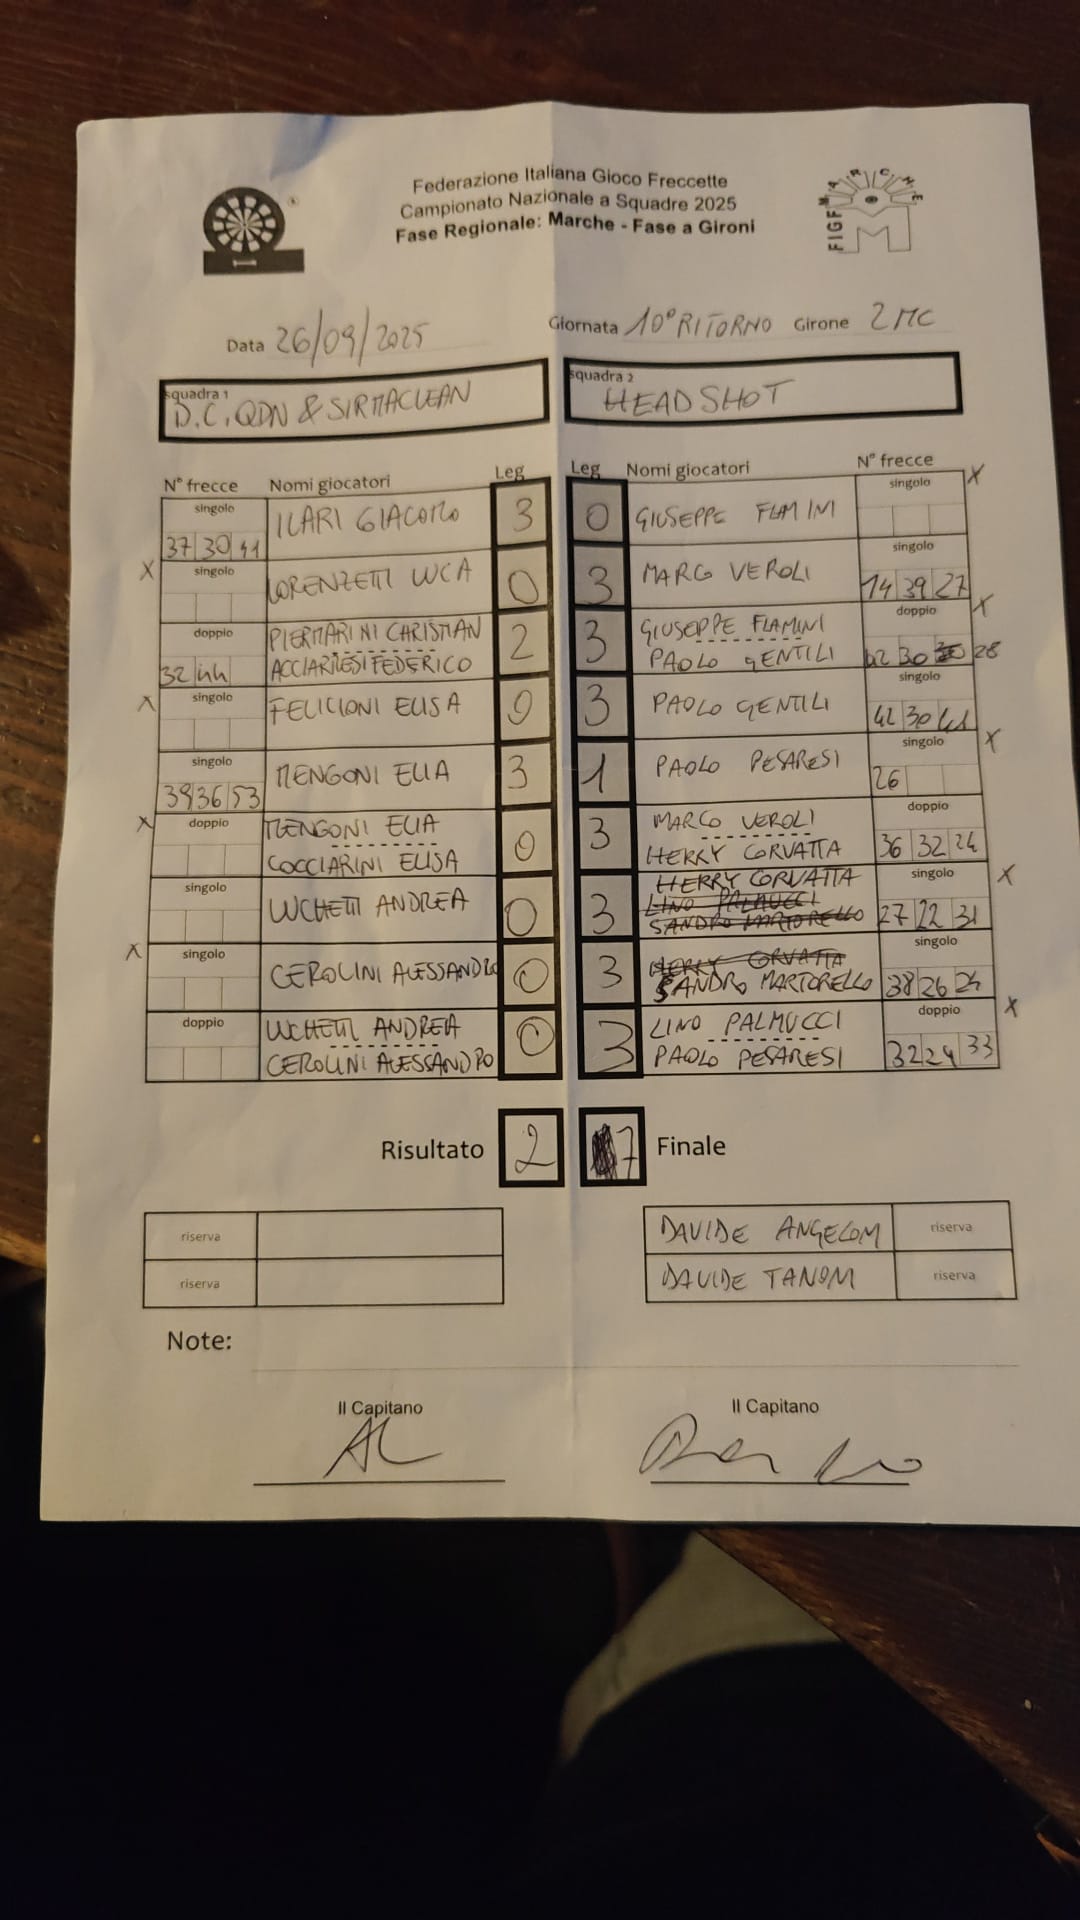 Federazione Italiana Gioco Freccette
Campionato Nazionale a Squadre 2025
Fase Regionale: Marche - Fase a Gironi
FIGF MARCHE
Data 26/09/2025
Giornata 10° RITORNO Girone 2 MC
squadra 1
D.C. QDN & SIRMACLEAN
squadra 2
HEADSHOT
N° frecce Nomi giocatori Leg Leg Nomi giocatori N° frecce
singolo ILARI GIACOMO 3 0 GIUSEPPE FLAMINI singolo X
37 30 41
X singolo LORENZETTI LUCA 0 3 MARCO VEROLI singolo
14 39 27
doppio PIERMARINI CHRISTIAN 2 3 GIUSEPPE FLAMINI doppio X
32 44 ACCIARRESI FEDERICO PAOLO GENTILI 42 30 28
X singolo FELICIONI ELISA 0 3 PAOLO GENTILI singolo
42 30
singolo MENGONI ELIA 3 1 PAOLO PESARESI singolo X
39 36 53 26
X doppio MENGONI ELIA 0 3 MARCO VEROLI doppio
COCCIARINI ELISA HERRY CORVATTA 36 32 24
singolo LUCHETTI ANDREA 0 3 HERRY CORVATTA singolo X
LINO PALMUCCI
SANDRO MARTORELLO 27 22 31
X singolo CEROLINI ALESSANDRO 0 3 HERRY CORVATTA singolo
SANDRO MARTORELLO 38 26 24
doppio LUCHETTI ANDREA 0 3 LINO PALMUCCI doppio X
CEROLINI ALESSANDRO PAOLO PESARESI 32 24 33
Risultato 2 7 Finale
riserva DAVIDE ANGELONI riserva
riserva DAVIDE TANONI riserva
Note:
Il Capitano Il Capitano